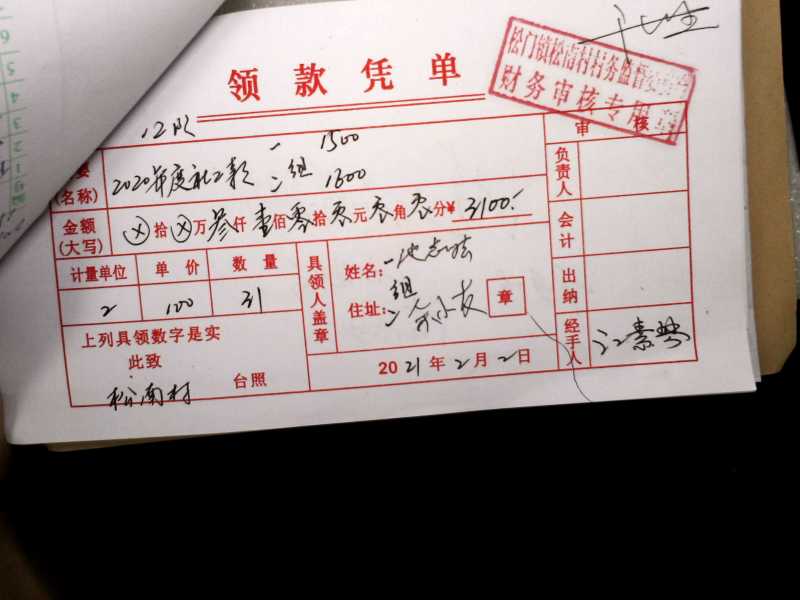 领款凭单
松门镇松南村村务监督委员会
财务审核专用章
12队
一 1500
2020年度社工款 二组 1600
要
(名称)
金额
(大写)
ⓧ拾ⓧ万叁仟壹佰零拾零元零角零分¥ 3100.-
计量单位 单价 数量
2 100 31
上列具领数字是实
此致
松南村 台照
具领人盖章
姓名：一
组
住址：二
章
2021年2月2日
审核
负责人
会计
出纳
经手人
6
5
4
3
2
1